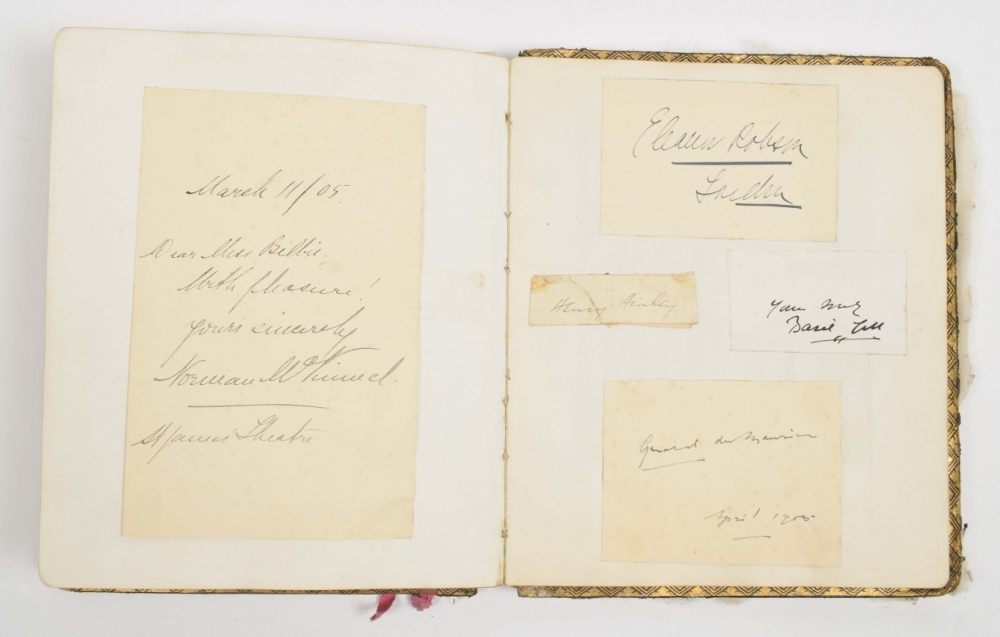 March 11/05.
Dear Miss Bilbie,
With pleasure!
Yours sincerely
Norman McKinnel.
St James' Theatre
Eleanor Robson
London
Henry Ainley.
Yours truly
Basil Gill
Gerald du Maurier
April 1905